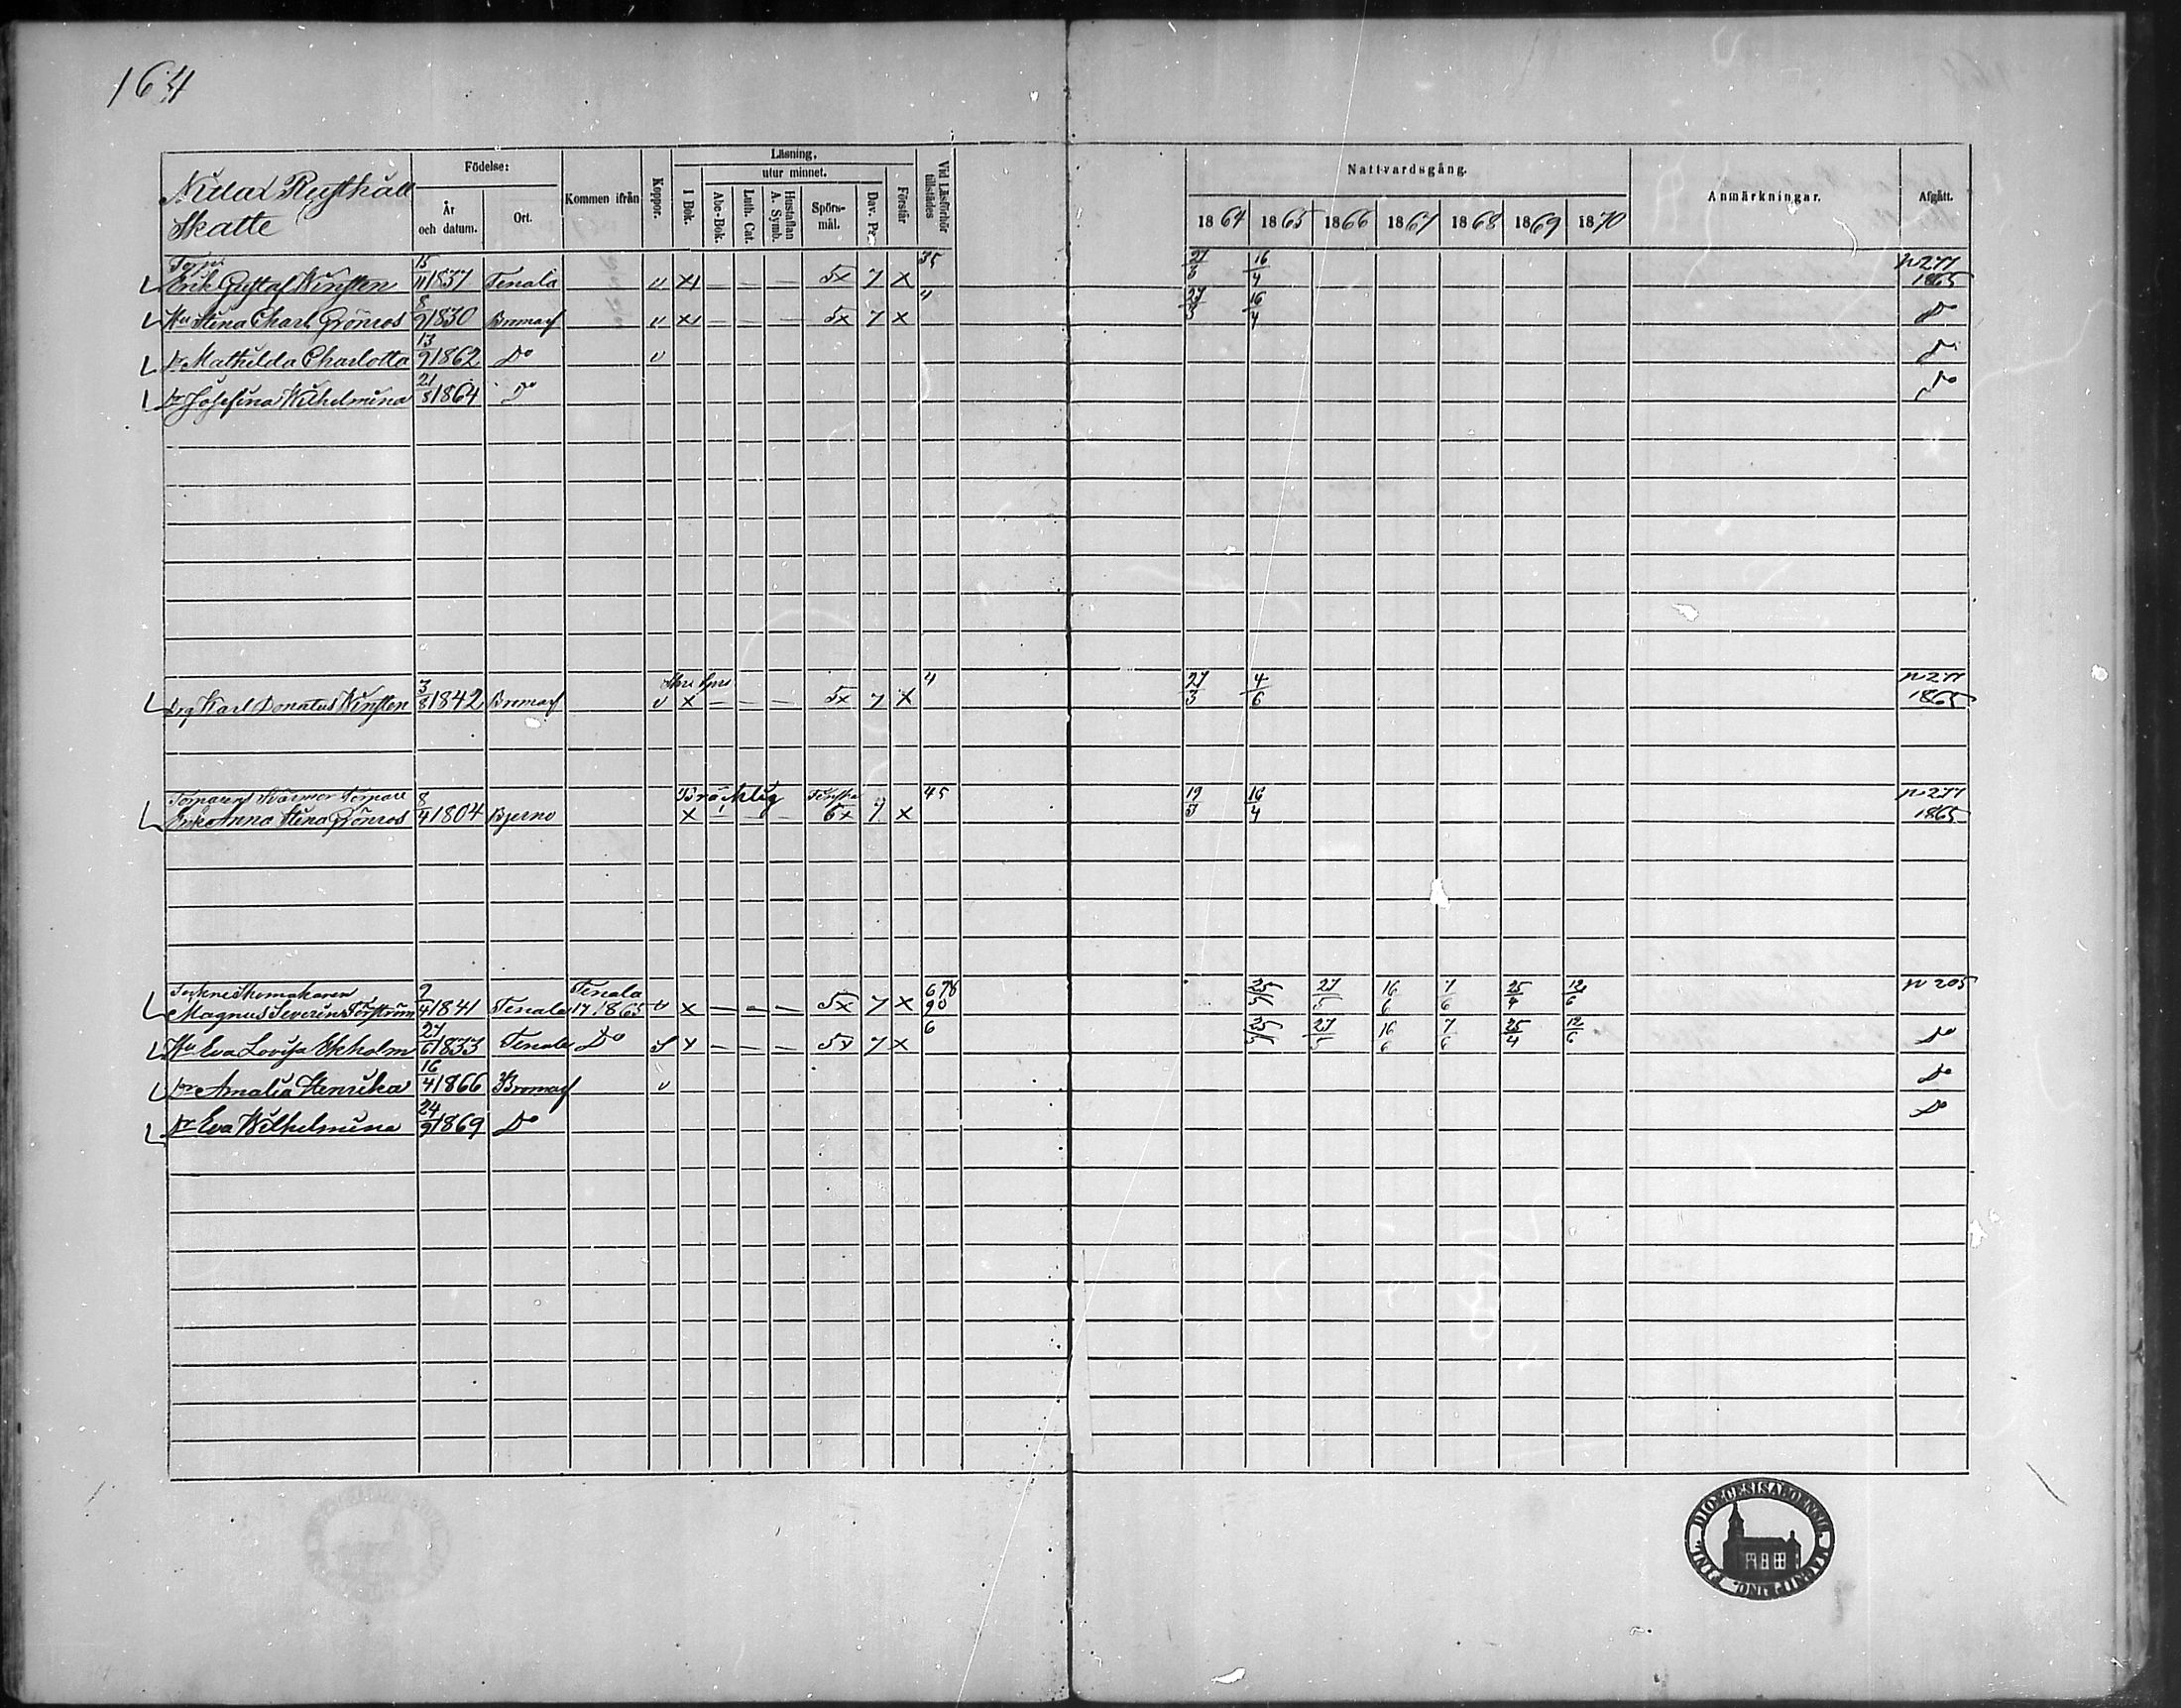 164
Födelse:
Läsning,
utur minnet.
Nattvardsgång.
Skatte
År och datum.
Ort.
Kommen ifrån
Koppor.
I Bok.
Abc-Bok.
Luth. Cat.
Hustaflan A. Symb.
Spörsmål.
Dav. Ps.
Förstår
Vid Läsförhör tillstädes
1864 1865 1866 1867 1868 1869 1870
Anmärkningar.
Afgått.
Torp. 15 35 27 16 p 277
Erik Gustaf 11 1837 Tenala u x 5x 7 x 3 4 1865
8 " 27 16
Hu Stina Charl. Grönros 9 1830 Bromarf u x 5x 7 x 3 4 Do
13
Dr Mathilda Charlotta 9 1862 Do u Do
21
Dr Josefina Wilhelmina 3 1864 Do Do
3 " 27 4 p 277
Karl Donatus 8 1842 Bromarf u x — — — 5x 7 x 3 6 1865
Torparens Svärmor Torpare 8 Bräcklig 45 19 16 p 277
Enka Anna Stina Grönros 4 1804 Bjerno x 6x 7 x 3 4 1865
Sockneskomakaren 9 Tenala 678 25 27 16 7 25 12 p 205
Magnus Severin Förström 4 1841 Tenala 17 1865 u x — — — 5x 7 x 90 5 5 6 6 4 6
27 6 25 27 16 7 25 12
Hu Eva Lovisa Ekholm 6 1833 Tenala Do S x — — — 5x 7 x 5 5 6 6 4 6 Do
16
Dr Amalia Henrika 4 1866 Bromarf u Do
24
Dr Eva Wilhelmina 9 1869 Do Do